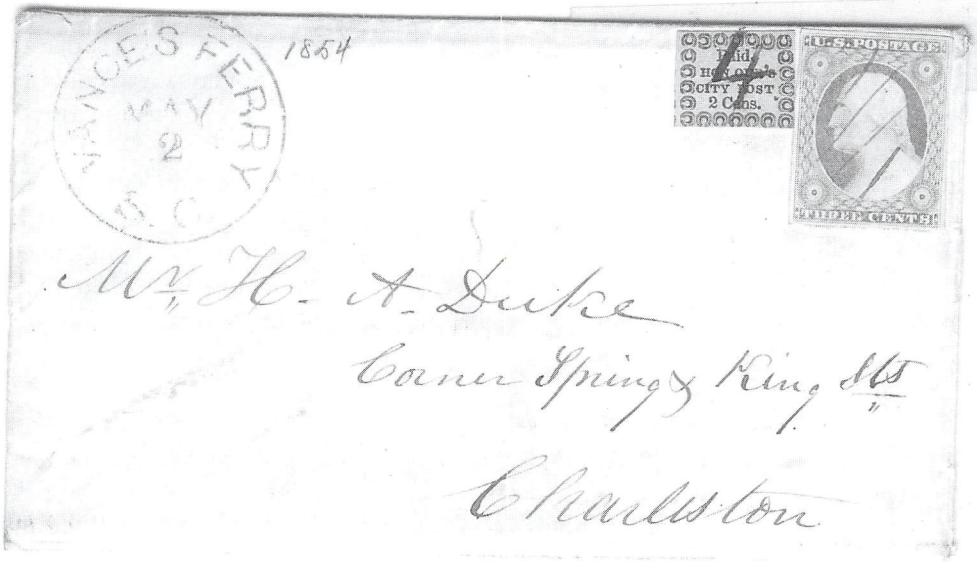 VANCE'S FERRY
MAY
2
S.C.
1854
4
Paid.
HONOUR'S
CITY POST
2 Cents.
U.S. POSTAGE
THREE CENTS
Mr. H. A. Duke
Corner Spring & King Sts
Charleston